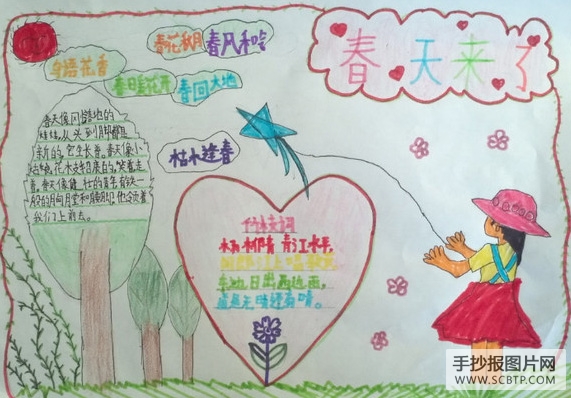 春天来了
春花秋月
春风和
鸟语花香
春暖花开
春回大地
枯木逢春
春天像刚落地的
娃娃,从头到脚都是
新的,它生长着。春天像小
姑娘,花枝招展的,笑着走
着。春天像健壮的青年,有铁
般的胳膊和腰脚,他领着
我们上前去。
竹枝词
杨柳青青江水平,
闻郎江上唱歌声
东边日出西边雨,
道是无晴还有晴。
手抄报图片网
WWW.SCBTP.COM